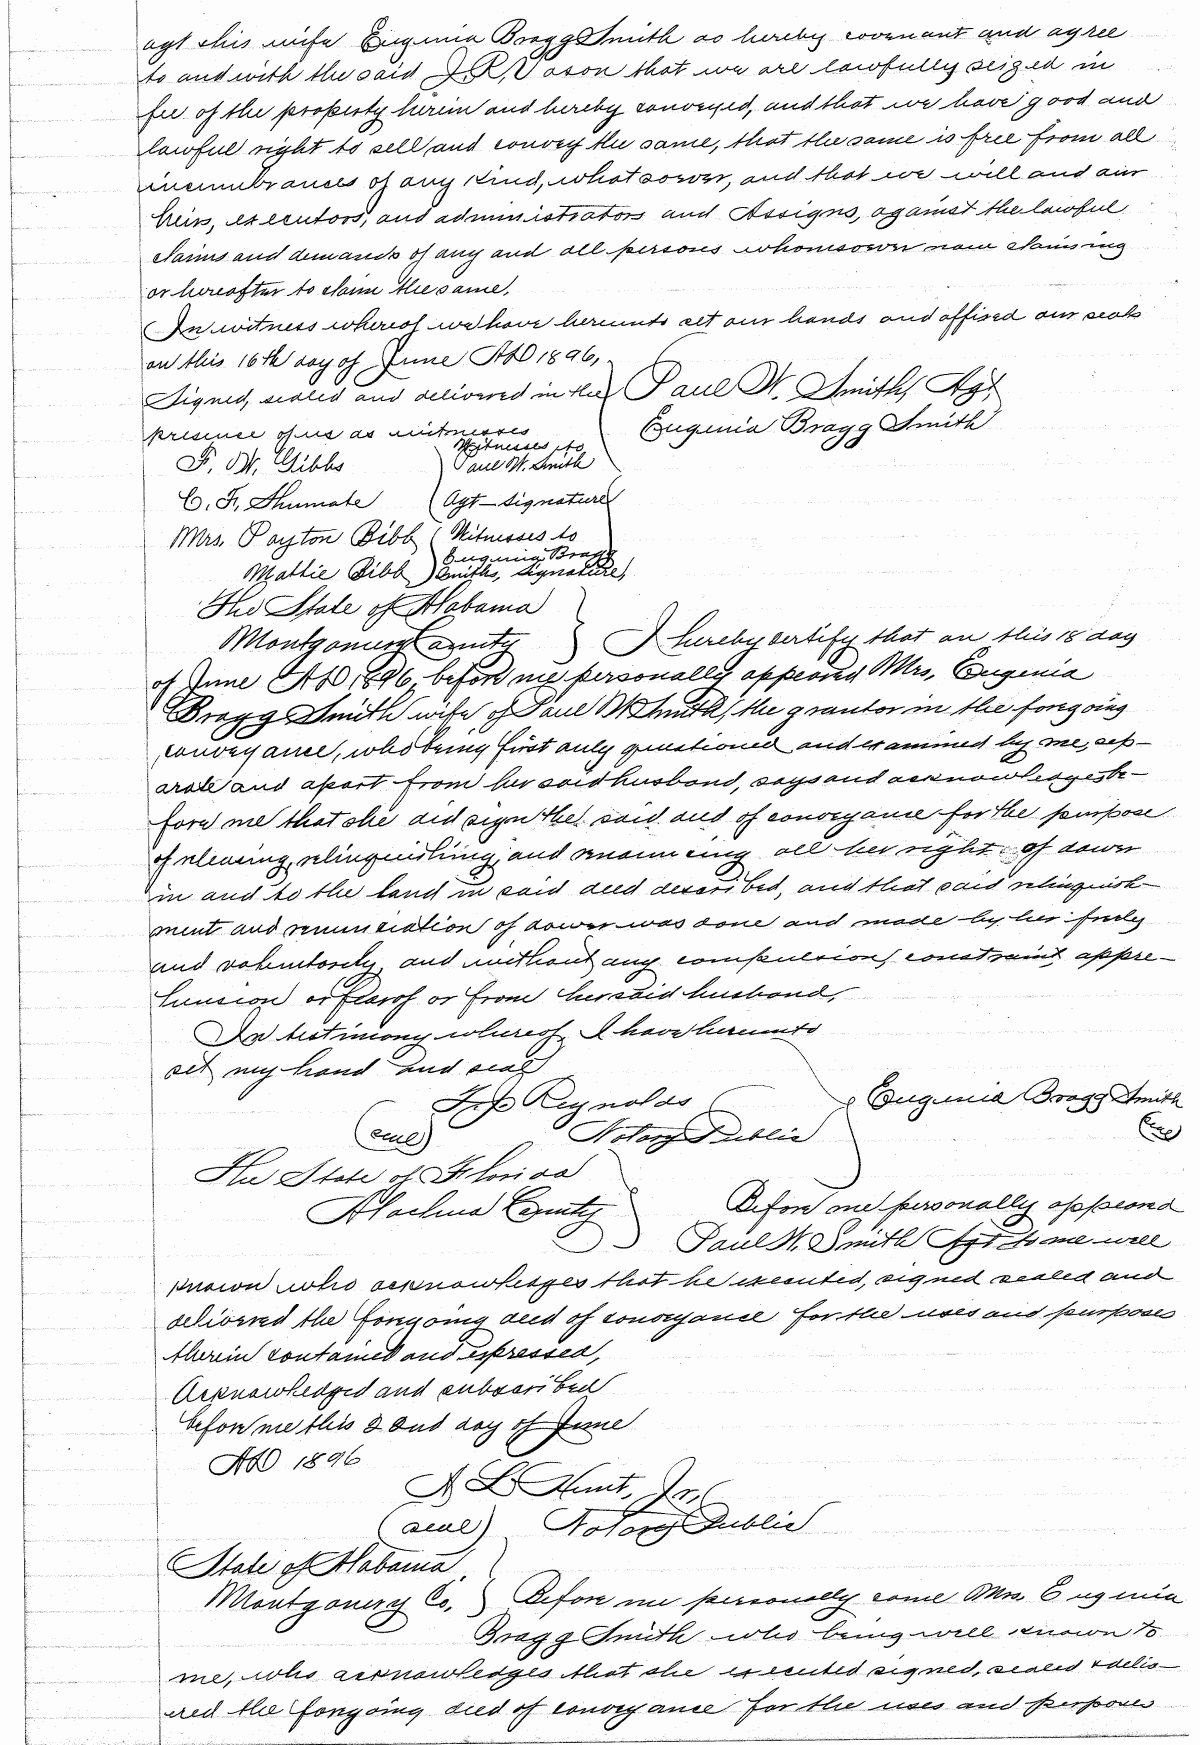 agt & his wife Eugenia Bragg Smith do hereby covenant and agree
to and with the said J. R. Vason that we are lawfully seized in
fee of the property herein and hereby conveyed, and that we have good and
lawful right to sell and convey the same, that the same is free from all
incumbrances of any kind, whatsoever, and that we will and our
heirs, executors, and administrators and Assigns, against the lawful
claims and demands of any and all persons whomsoever now claiming
or hereafter to claim the same.
In witness whereof we have hereunto set our hands and affixed our seals
on this 16th day of June AD 1896,
Signed, sealed and delivered in the Paul W. Smith, Agt
presence of us as witnesses Eugenia Bragg Smith
F. W. Gibbs Witnesses to Paul W. Smith
C. F. Shumate Agt-Signature
Mrs. Payton Bibb Witnesses to
Mattie Bibb Eugenia Bragg Smiths, Signature,
The State of Alabama
Montgomery County I hereby certify that on this 18 day
of June AD 1896, before me personally appeared Mrs, Eugenia
Bragg Smith wife of Paul W Smith, the grantor in the foregoing
conveyance, who being first duly questioned and examined by me, sep-
arate and apart from her said husband, says and acknowledges be-
fore me that she did sign the said deed of conveyance for the purpose
of releasing, relinquishing, and renouncing all her right of dower
in and to the land in said deed described, and that said relinquish-
ment and renunciation of dower was done and made by her freely
and voluntarily, and without any compulsion, constraint appre-
hension or fear of or from her said husband,
In testimony whereof I have hereunto
set my hand and seal
Reynolds Eugenia Bragg Smith
(seal) Notary Public (seal)
The State of Florida
Alachua County Before me personally appeared
Paul W. Smith Agt to me well
known who acknowledges that he executed, signed sealed and
delivered the foregoing deed of conveyance for the uses and purposes
therein contained and expressed,
Acknowledged and subscribed
before me this 22nd day of June
AD 1896
A L Hunt, Jr,
(seal) Notary Public
State of Alabama
Montgomery Co, Before me personally come Mrs Eugenia
Bragg Smith who being well known to
me, who acknowledges that she executed signed, sealed & deliv-
ered the foregoing deed of conveyance for the uses and purposes